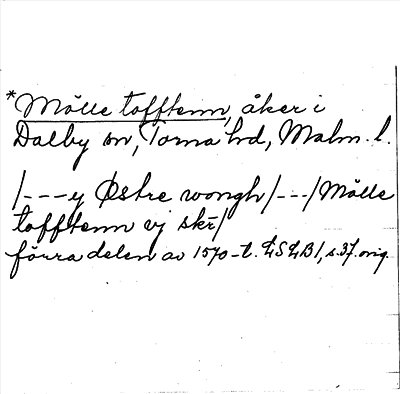 *Mölle tofftenn, åker i
Dalby sn, Torna hd, Malm. l.
/---y Østre wongh/---/Mölle
tofftenn vj skr/
förra delen av 1570-t. LSLB1, s.37. orig.